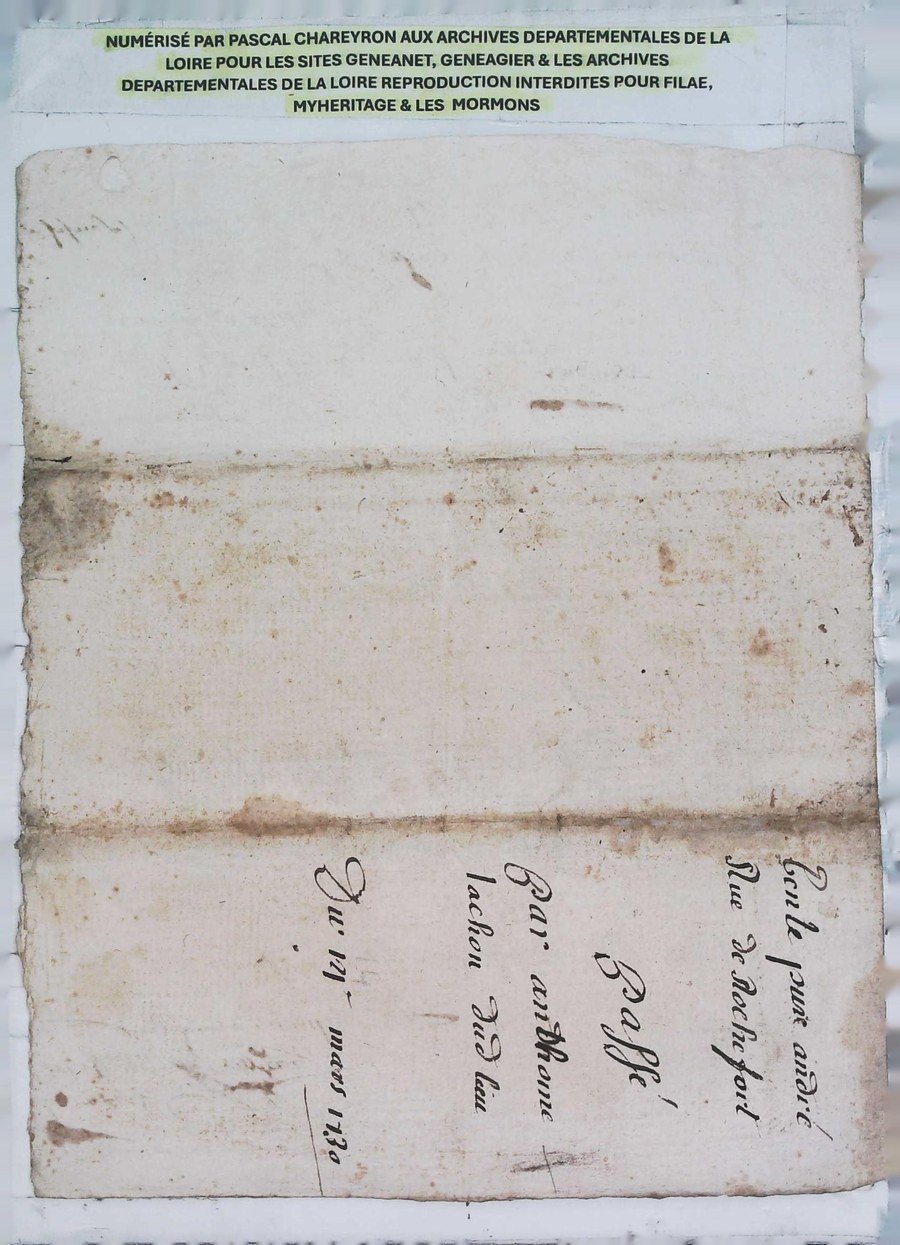 NUMÉRISÉ PAR PASCAL CHAREYRON AUX ARCHIVES DEPARTEMENTALES DE LA
LOIRE POUR LES SITES GENEANET, GENEAGIER & LES ARCHIVES
DEPARTEMENTALES DE LA LOIRE REPRODUCTION INTERDITES POUR FILAE,
MYHERITAGE & LES MORMONS
andré
Rue de Rochefort
Passé
Par anthome
lachon dud lieu
Du mars 1730